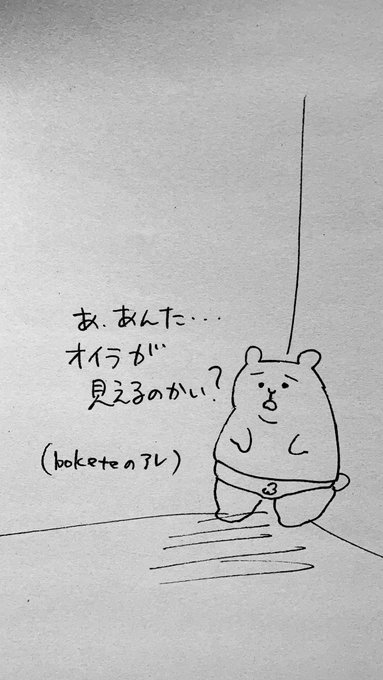 あ、あんた・・・
オイラが
見えるのかい?
(boketeのアレ)